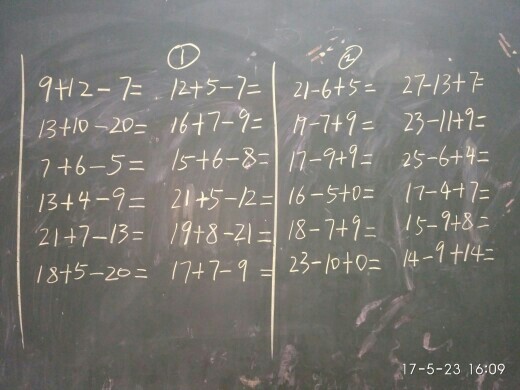 ① ②
9+12-7= 12+5-7= 21-6+5= 27-13+7=
13+10-20= 16+7-9= 19-7+9= 23-11+9=
7+6-5= 15+6-8= 17-9+9= 25-6+4=
13+4-9= 21+5-12= 16-5+0= 17-4+7=
21+7-13= 19+8-21= 18-7+9= 15-9+8=
18+5-20= 17+7-9= 23-10+0= 14-9+14=
17-5-23 16:09